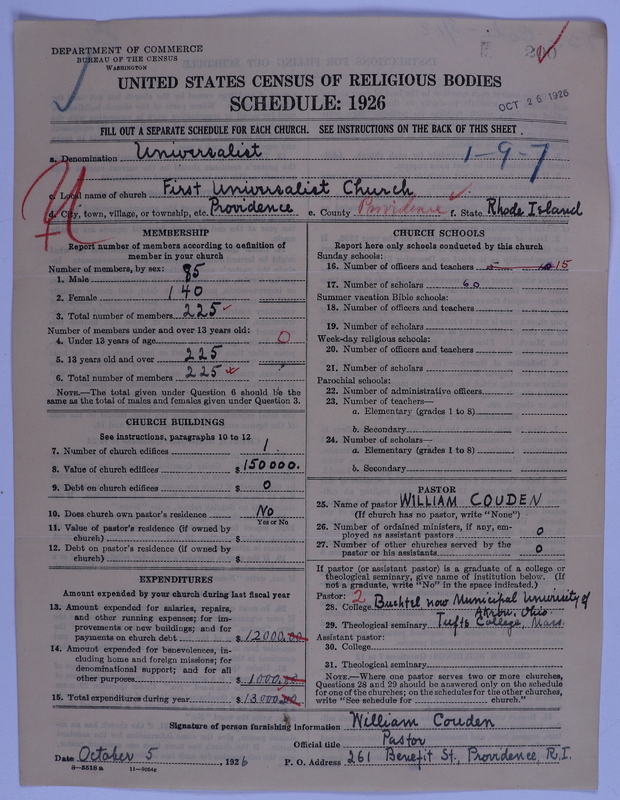 DEPARTMENT OF COMMERCE
BUREAU OF THE CENSUS
WASHINGTON
UNITED STATES CENSUS OF RELIGIOUS BODIES
SCHEDULE: 1926
OCT 26 1926
FILL OUT A SEPARATE SCHEDULE FOR EACH CHURCH. SEE INSTRUCTIONS ON THE BACK OF THIS SHEET.
a. Denomination Universalist 1-9-7
c. Local name of church First Universalist Church
d. City, town, village, or township, etc. Providence e. County Providence f. State Rhode Island
MEMBERSHIP
Report number of members according to definition of
member in your church
Number of members, by sex:
1. Male 85
2. Female 140
3. Total number of members 225
Number of members under and over 13 years old:
4. Under 13 years of age 0
5. 13 years old and over 225
6. Total number of members 225
NOTE.—The total given under Question 6 should be the
same as the total of males and females given under Question 3.
CHURCH BUILDINGS
See instructions, paragraphs 10 to 12
7. Number of church edifices 1
8. Value of church edifices $150000.
9. Debt on church edifices $ 0
10. Does church own pastor's residence? No
Yes or No
11. Value of pastor's residence (if owned by
church) $
12. Debt on pastor's residence (if owned by
church) $
EXPENDITURES
Amount expended by your church during last fiscal year
13. Amount expended for salaries, repairs,
and other running expenses; for im-
provements or new buildings; and for
payments on church debt $12000.00
14. Amount expended for benevolences, in-
cluding home and foreign missions; for
denominational support; and for all
other purposes $1000.00
15. Total expenditures during year $13000.00
CHURCH SCHOOLS
Report here only schools conducted by this church
Sunday schools:
16. Number of officers and teachers 15
17. Number of scholars 60
Summer vacation Bible schools:
18. Number of officers and teachers
19. Number of scholars
Week-day religious schools:
20. Number of officers and teachers
21. Number of scholars
Parochial schools:
22. Number of administrative officers
23. Number of teachers—
a. Elementary (grades 1 to 8)
b. Secondary
24. Number of scholars—
a. Elementary (grades 1 to 8)
b. Secondary
PASTOR
25. Name of pastor WILLIAM COUDEN
(If church has no pastor, write "None")
26. Number of ordained ministers, if any, em-
ployed as assistant pastors 0
27. Number of other churches served by the
pastor or his assistants 0
If pastor (or assistant pastor) is a graduate of a college or
theological seminary, give name of institution below. (If
not a graduate, write "No" in the space indicated.)
Pastor: 2
28. College Buchtel now Municipal University of
Akron, Ohio
29. Theological seminary Tufts College, Mass.
Assistant pastor:
30. College
31. Theological seminary
NOTE.—Where one pastor serves two or more churches,
Questions 28 and 29 should be answered only on the schedule
for one of the churches; on the schedules for the other churches,
write "See schedule for church."
Signature of person furnishing information William Couden
Official title Pastor
Date October 5, 1926 P. O. Address 261 Benefit St., Providence, R.I.
8—5518a 11—9064c